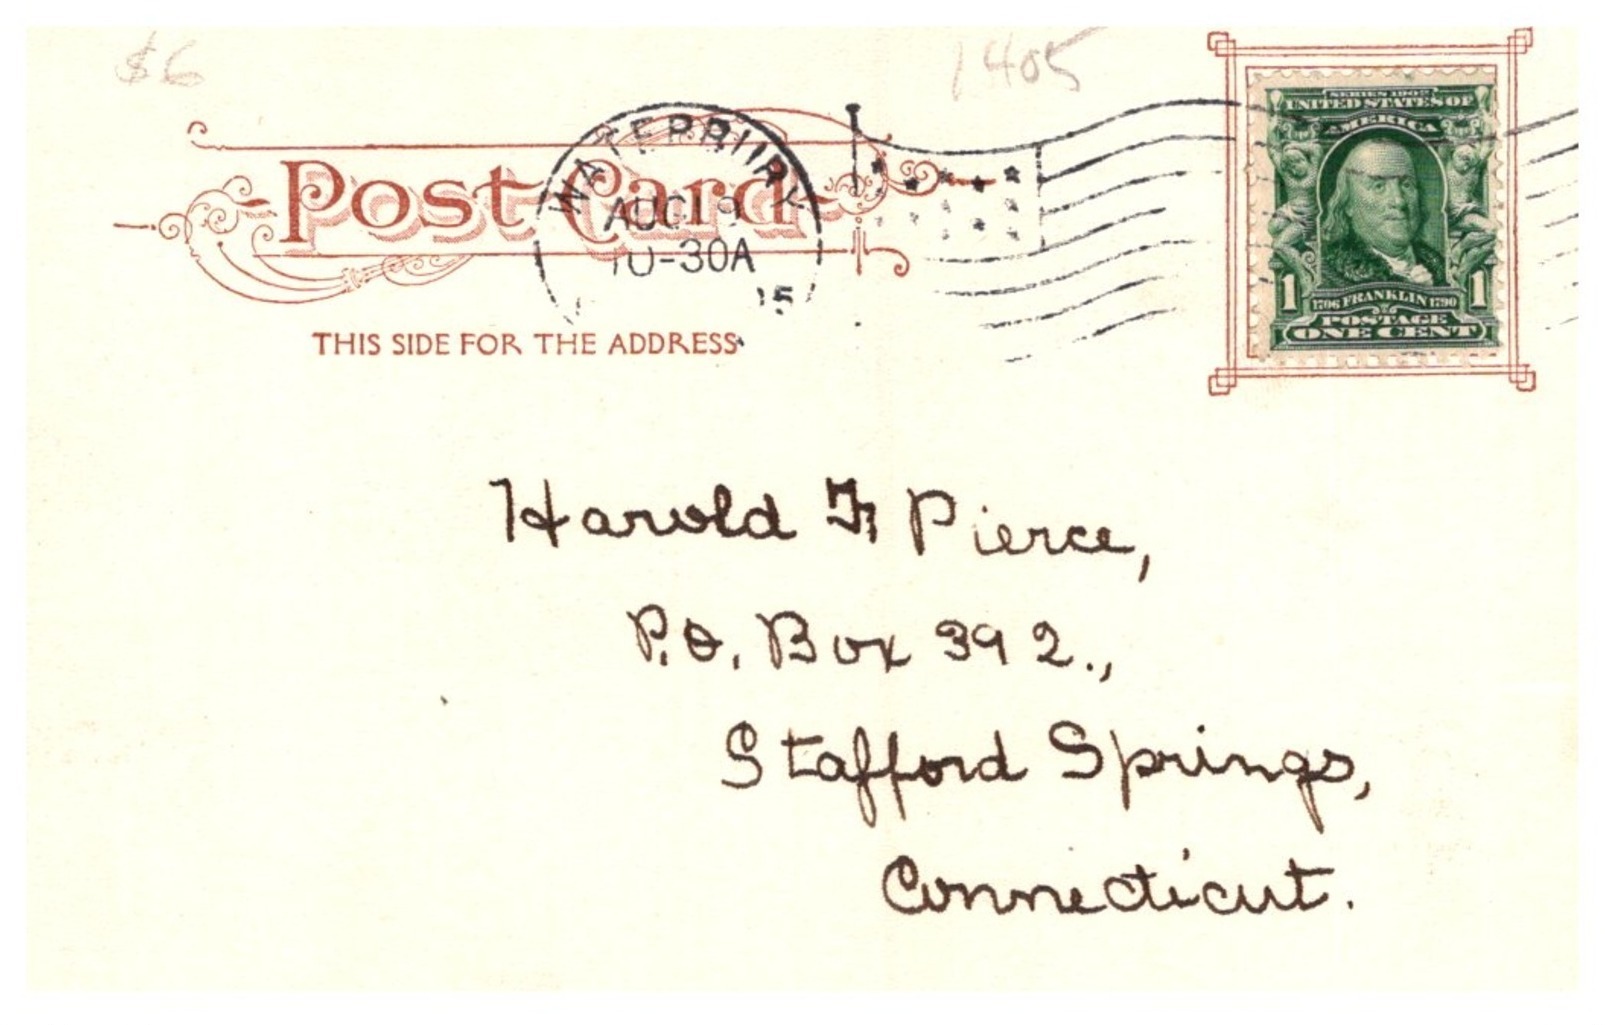 $6
1405
Post Card
WATERBURY
AUG 19
10-30A
THIS SIDE FOR THE ADDRESS
SERIES 1902
UNITED STATES OF
AMERICA
1 1706 FRANKLIN 1790 1
POSTAGE
ONE CENT
Harold F. Pierce,
P.O. Box 392.,
Stafford Springs,
Connecticut.